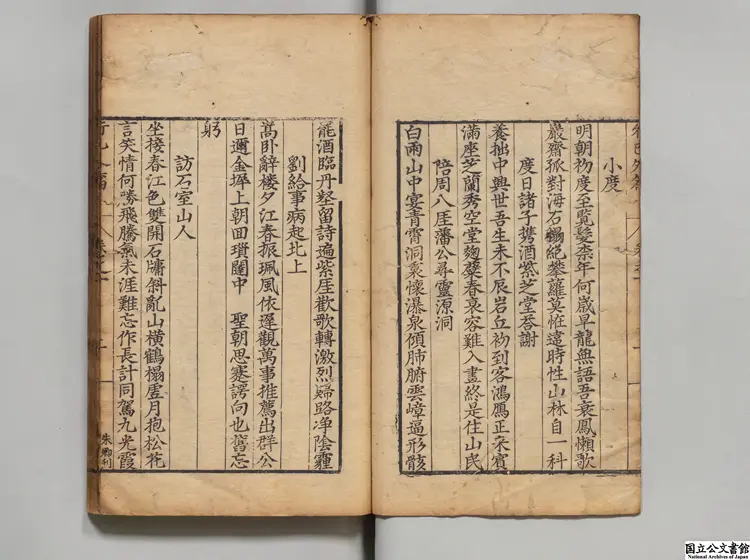 小度
明朝初度至覧髮柰年何歲早龍無語吾衰鳳懶歌
巖齋孤對海石絕攀蘿莫恠違時性山林自一科
度日諸子携酒紫芝堂荅謝
養拙中興世吾生未不辰岩丘初到客鴻鴈正來賓
滿座芝蘭秀空堂麹糵春哀容難入畫終是住山民
陪周八厓藩公尋靈源洞
白雨山中宴青霄洞裏懷瀑泉傾肺腑雲嶂逼形骸
罷酒臨丹壑留詩遍紫厓歡歌轉激烈歸路净陰霾
劉給事病起北上
高卧辭楼夕江春振珮風依遲觀萬事推薦出群公
日邇金墀上朝回瑣闥中 聖朝思蹇諤向也舊忘
躬
訪石室山人
坐接春江色雙開石牗斜亂山橫鶴榻虛月抱松花
言笑情何勝飛騰氣未涯難忘作長計同駕九光霞
朱卿刊
国立公文書館
National Archives of Japan